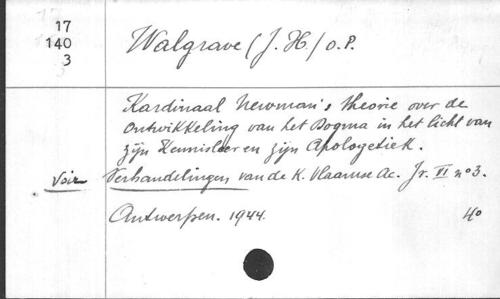 17
140
3
Walgrave (J. H.) o.p.
Kardinaal Newman's theorie over de
Ontwikkeling van het Dogma in het licht van
zijn Kennisleer en zijn Apologetiek.
Voir Verhandelingen van de K. Vlaamse Ac. Jr. VI n° 3.
Antwerpen. 1944. 4°